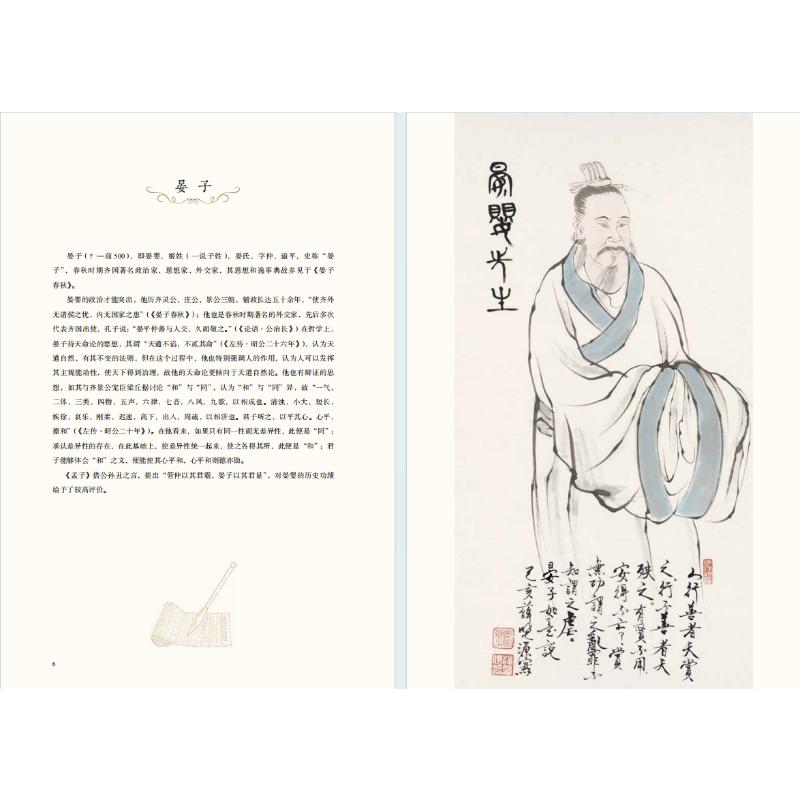 晏 子
晏子（？—前500），即晏婴，姬姓（一说子姓），晏氏，字仲，谥平，史称“晏
子”，春秋时期齐国著名政治家、思想家、外交家，其思想和逸事典故多见于《晏子
春秋》。
晏婴的政治才能突出，他历齐灵公、庄公、景公三朝，辅政长达五十余年，“使齐外
无诸侯之忧，内无国家之患”（《晏子春秋》）；他也是春秋时期著名的外交家，先后多次
代表齐国出使，孔子说：“晏平仲善与人交，久而敬之。”（《论语·公冶长》）在哲学上，
晏子持天命论的思想，其谓“天道不谄，不贰其命”（《左传·昭公二十六年》），认为天
道自然，有其不变的法则，但在这个过程中，他也特别强调人的作用，认为人可以发挥
其主观能动性，使天下得到治理，故他的天命论更倾向于天道自然论。他也有辩证的思
想，如其与齐景公宠臣梁丘据讨论“和”与“同”，认为“和”与“同”异，故“一气，
二体，三类，四物，五声，六律，七音，八风，九歌，以相成也。清浊，小大，短长，
疾徐，哀乐，刚柔，迟速，高下，出入，周疏，以相济也。君子听之，以平其心。心平，
德和”（《左传·昭公二十年》）。在他看来，如果只有同一性而无差异性，此便是“同”；
承认差异性的存在，在此基础上，使差异性统一起来，使之各得其所，此便是“和”；君
子能够体会“和”之义，便能使其心平和，心平和则德亦励。
《孟子》借公孙丑之言，提出“管仲以其君霸，晏子以其君显”，对晏婴的历史功绩
给予了较高评价。
6
晏嬰先生
人行善者天賞
之，行不善者天
殃之。有賢不用，
安得不亡，賞
無功謂之亂，罪不
知謂之虐。
晏子如是說
己亥薛曉源寫